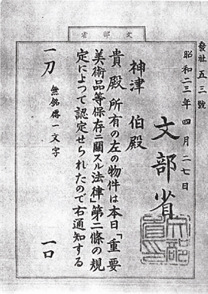 文部省
發社五三號
昭和二三年四月二七日
文部省
神津伯殿
貴殿所有の左の物件は本日「重要
美術品等保存ニ關スル法律」第二條の規
定によつて認定せられたので右通知する
一刀 無銘傳一文字 一口